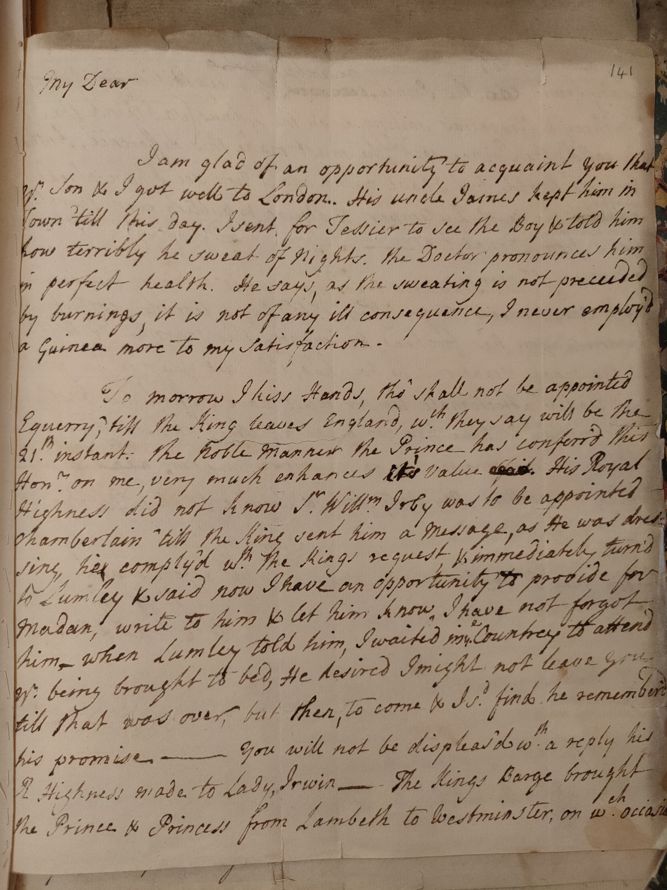 141
My Dear
I am glad of an opportunity to acquaint you that
yr. Son & I got well to London. His uncle James kept him in
Town till this day. I sent for Tessier to see the Boy & told him
how terribly he sweat of Nights. the Doctor pronounces him
in perfect health. He says, as the sweating is not preceeded
by burnings, it is not of any ill consequence, I never employ'd
a Guinea more to my Satisfaction.
To morrow I kiss Hands, tho' shall not be appointed
Equerry, till the King leaves England, wch. they say will be the
21st. instant. the Noble manner the Prince has conferrd this
Honr. on me, very much enhances its value. His Royal
Highness did not know Sr. Willm Irby was to be appointed
Chamberlain till the King sent him a message, as He was dres-
sing, he comply'd wth. the Kings request & immediately turn'd
to Lumley & said now I have an opportunity to provide for
Madan, write to him & let him know, I have not forgot
him_ when Lumley told him, I waited in ye Countrey to attend
yr. being brought to bed, He desired I might not leave you
till that was over, but then, to come & I sd. find he remember'd
his promise —— You will not be displeas'd wth. a reply his
R Highness made to Lady Irwin — The Kings Barge brought
the Prince & Princess from Lambeth to Westminster, on wch occasion